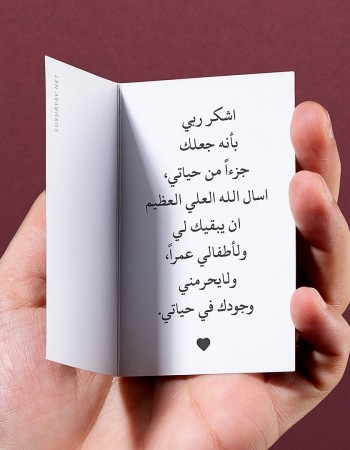 اشكر ربي
بأنه جعلك
جزءاً من حياتي،
اسال الله العلي العظيم
ان يبقيك لي
ولأطفالي عمراً،
ولايحرمني
وجودك في حياتي.